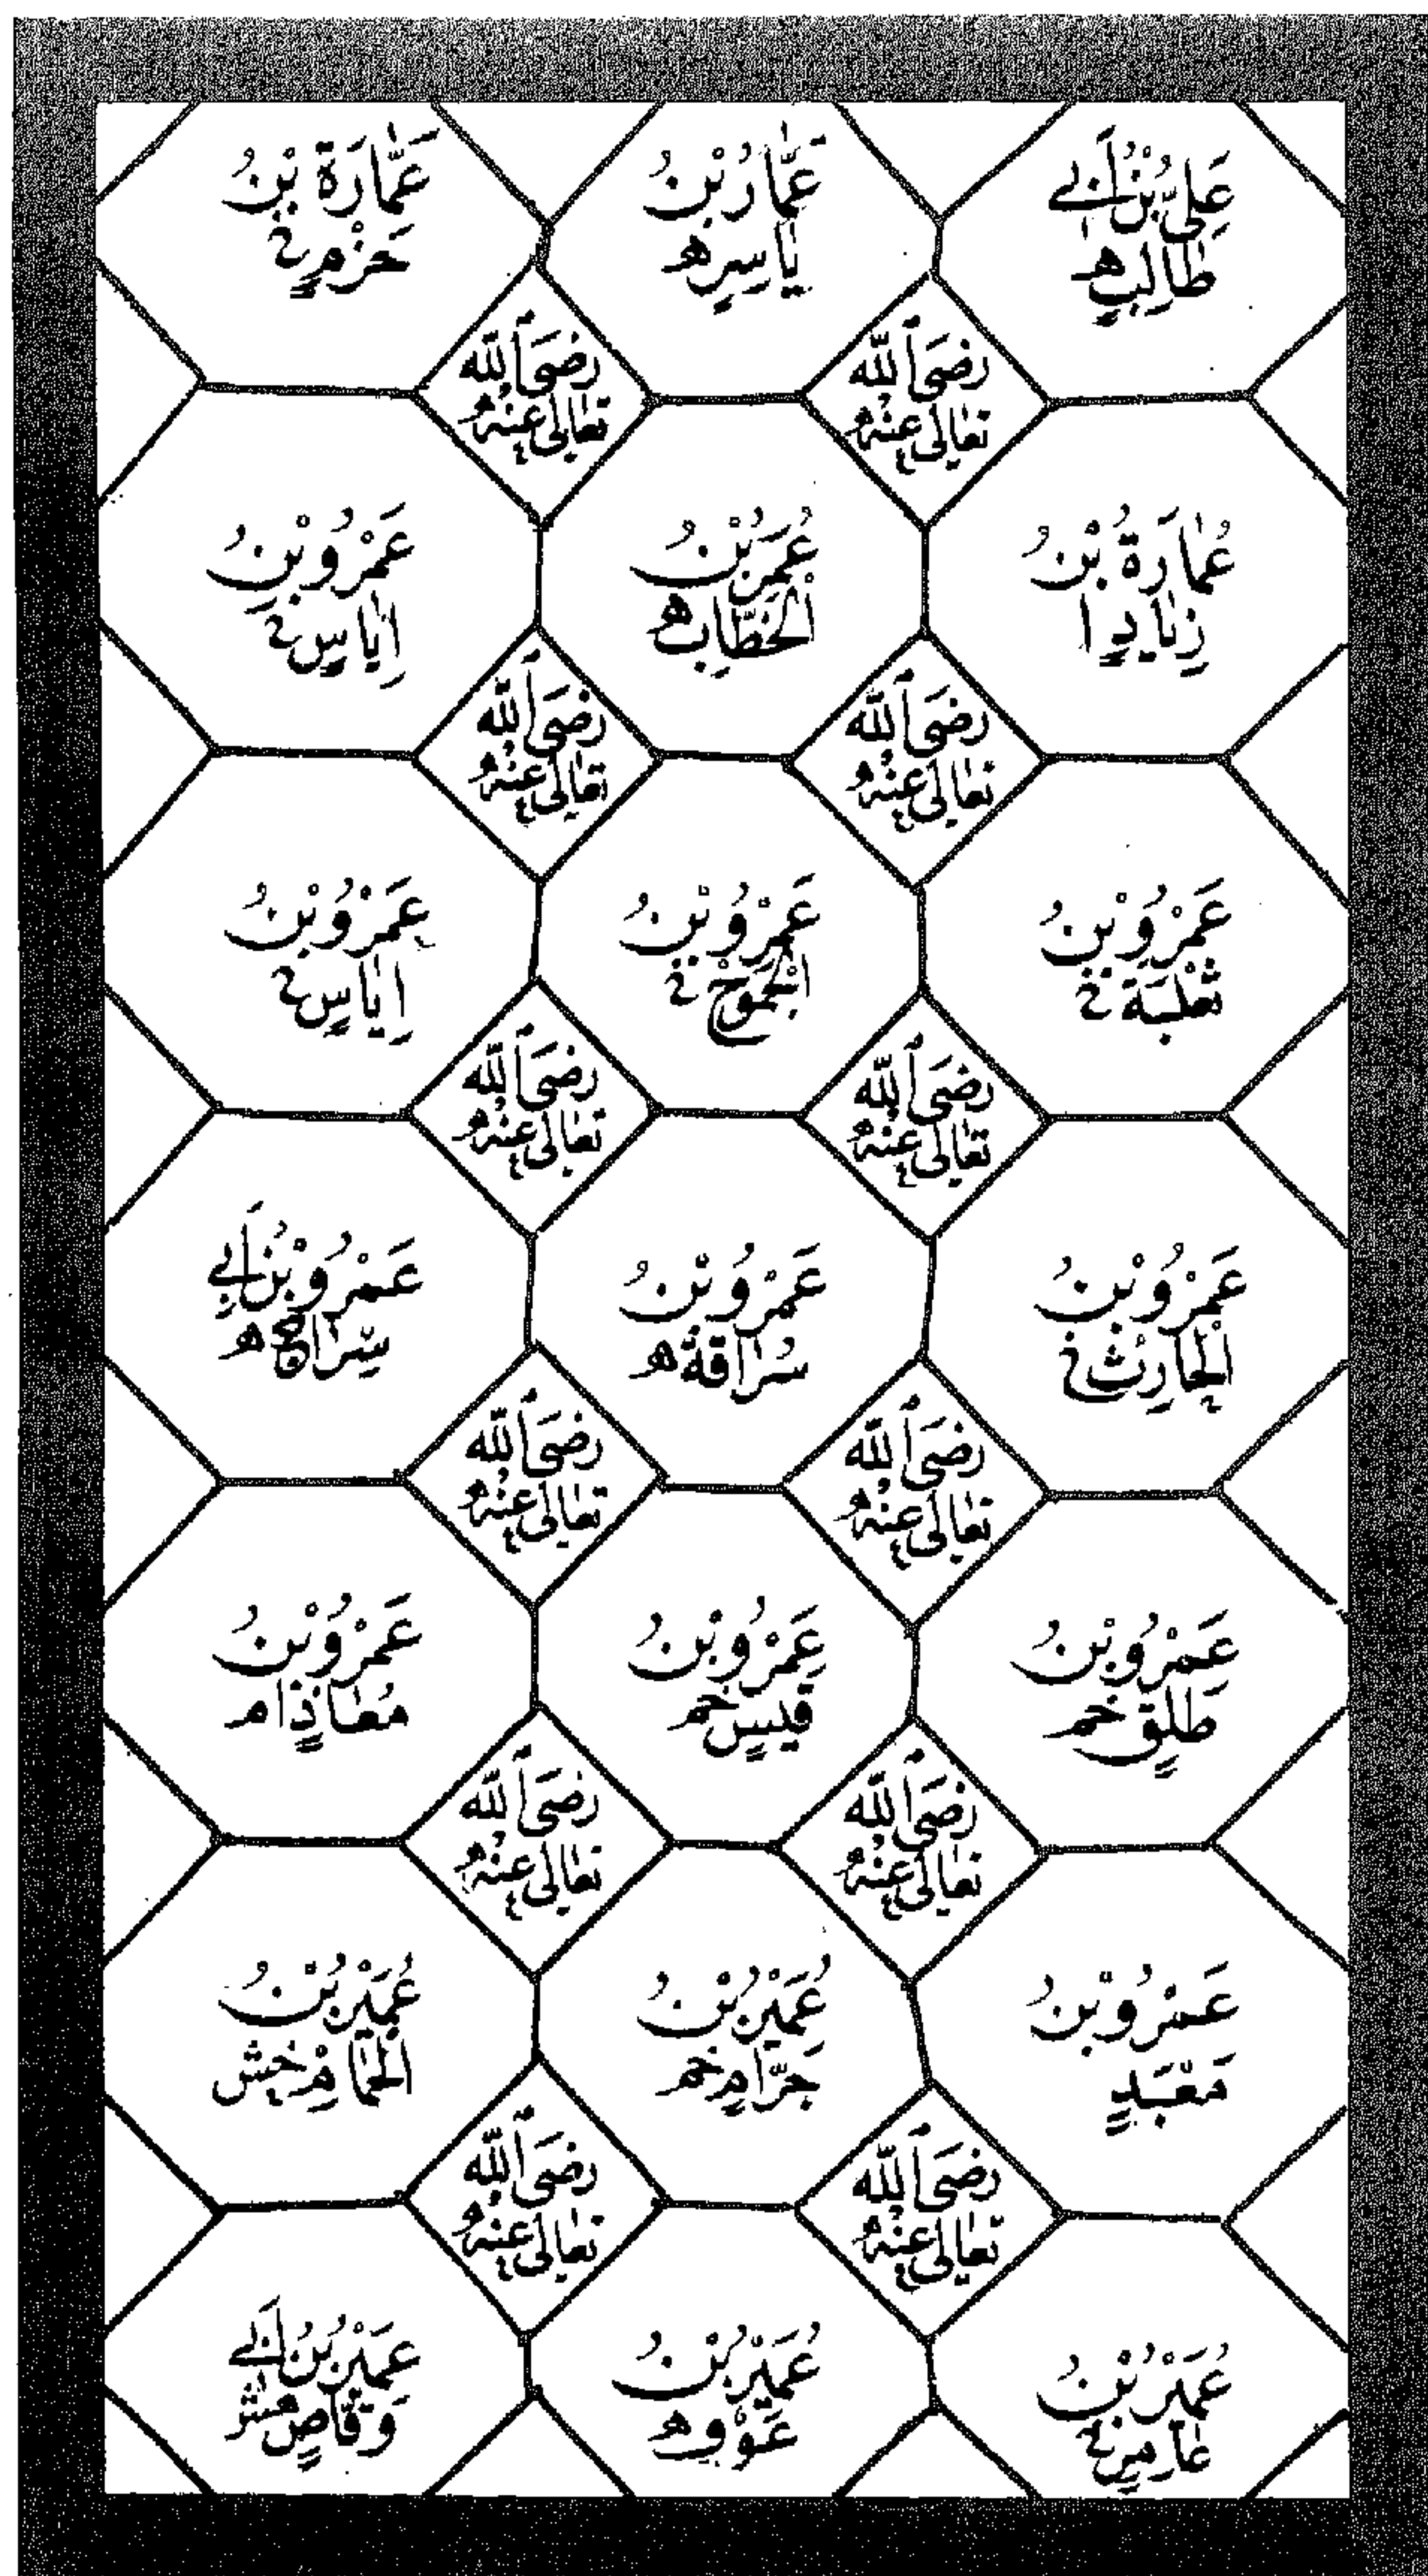 عَلِيُّ بْنُ أَبِي
طَالِبٍ ه
عَمَّارُ بْنُ
يَاسِرٍ ه
عَمَّارَةُ بْنُ
حَزْمٍ خ
رَضِيَ اللّٰه
تَعَالٰى عَنْهُ
رَضِيَ اللّٰه
تَعَالٰى عَنْهُ
عُمَارَةُ بْنُ
زِيَادٍ ا
عُمَرُ بْنُ
الْخَطَّابِ ه
عَمْرُو بْنُ
اِيَاسٍ خ
رَضِيَ اللّٰه
تَعَالٰى عَنْهُ
رَضِيَ اللّٰه
تَعَالٰى عَنْهُ
عَمْرُو بْنُ
ثَعْلَبَةَ خ
عَمْرُو بْنُ
الْجَمُوْحِ خ
عَمْرُو بْنُ
اِيَاسٍ خ
رَضِيَ اللّٰه
تَعَالٰى عَنْهُ
رَضِيَ اللّٰه
تَعَالٰى عَنْهُ
عَمْرُو بْنُ
الْحَارِثِ خ
عَمْرُو بْنُ
سُرَاقَةَ ه
عَمْرُو بْنُ أَبِي
سِرَاجٍ ه
رَضِيَ اللّٰه
تَعَالٰى عَنْهُ
رَضِيَ اللّٰه
تَعَالٰى عَنْهُ
عَمْرُو بْنُ
طَلْقٍ خم
عَمْرُو بْنُ
قَيْسٍ خم
عَمْرُو بْنُ
مُعَاذٍ ام
رَضِيَ اللّٰه
تَعَالٰى عَنْهُ
رَضِيَ اللّٰه
تَعَالٰى عَنْهُ
عَمْرُو بْنُ
مَعْبَدٍ
عُمَيْرُ بْنُ
حَرَامٍ خم
عُمَيْرُ بْنُ
الْحُمَامْ خش
رَضِيَ اللّٰه
تَعَالٰى عَنْهُ
رَضِيَ اللّٰه
تَعَالٰى عَنْهُ
عُمَيْرُ بْنُ
عَامِرٍ خ
عُمَيْرُ بْنُ
عَوْفٍ ه
عُمَيْرُ بْنُ أَبِي
وَقَّاصٍ هش